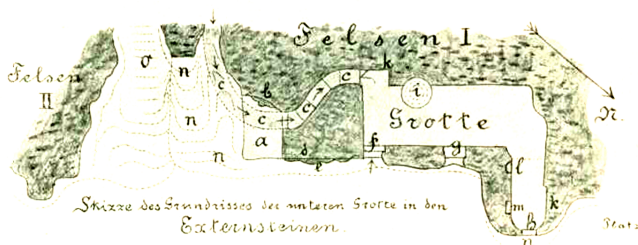 Felsen I
Felsen
II
o
n
c
b
k
c
i
N.
c
c
n
c
Grotte
a
f
g
n
d
e
l
m
k
h
n
Skizze des Grundrisses der unteren Grotte in den
Externsteinen.
Platz